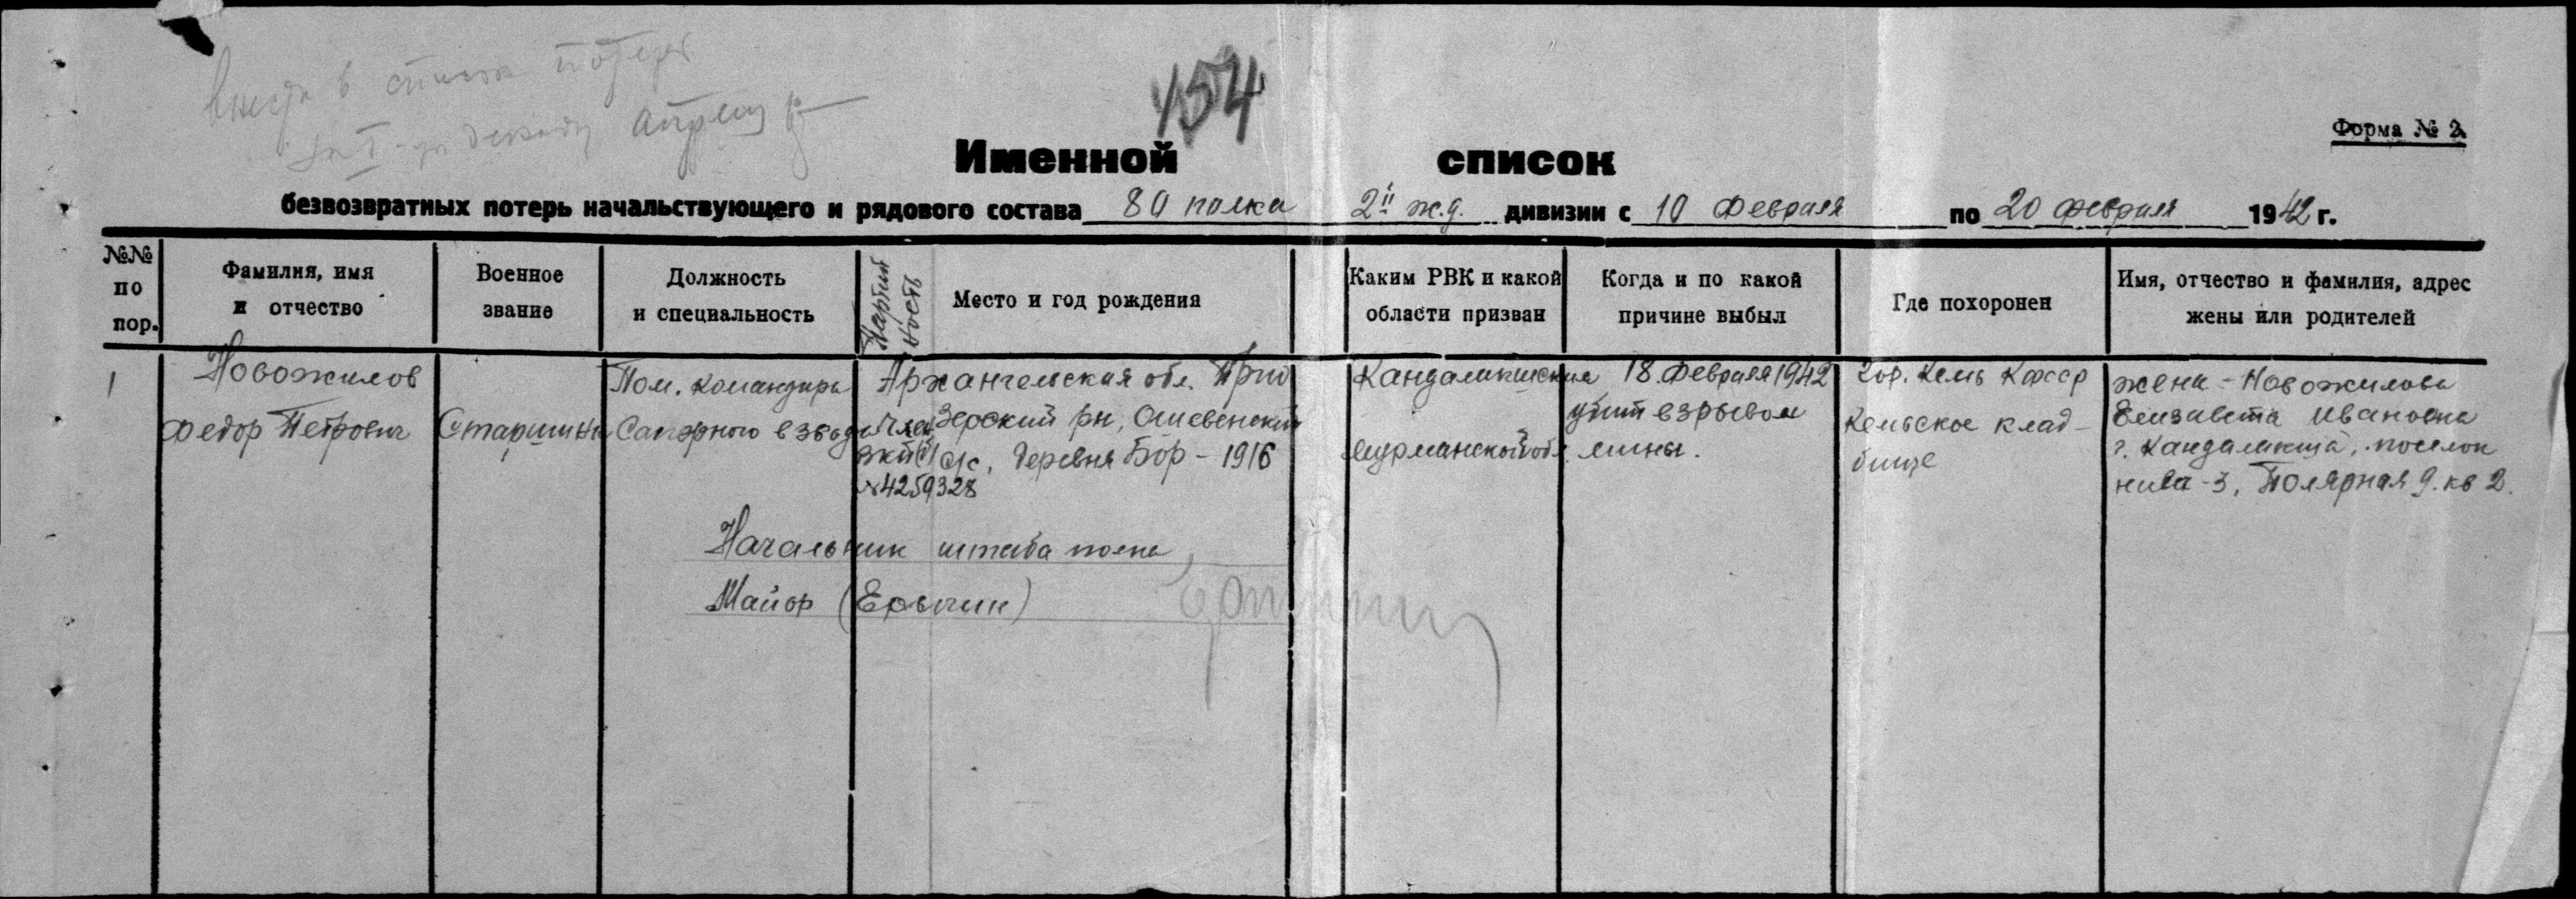 в список потерь
декаду апреля
154
Форма № 2
Именной список
безвозвратных потерь начальствующего и рядового состава 80 полка 2й ж.д. дивизии с 10 февраля по 20 февраля 1942 г.
№№ по пор.
Фамилия, имя и отчество
Военное звание
Должность и специальность
Партийность
Место и год рождения
Каким РВК и какой области призван
Когда и по какой причине выбыл
Где похоронен
Имя, отчество и фамилия, адрес жены или родителей
1
Новожилов
Федор Петрович
Старшина
Пом. командира
Саперного взвода
Член
ВКП(б)
№4259328
Архангельская обл. Прио
зерский рн, Ошевенский
с/с, деревня Бор - 1916
Кандалакшским
Мурманской обл.
18 февраля 1942
убит взрывом
мины.
гор. Кемь Кфсср
Кемьское клад-
бище
жена - Новожилова
Елизавета Ивановна
г. Кандалакша, поселок
нива-3, Полярная д. кв 2.
Начальник штаба полка
Майор